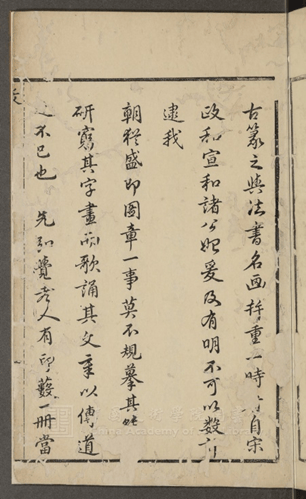 古篆之與法書名画並重一時肇自宋
政和宣和諸公始爰及有明不可以數計
逮我
朝猶盛即圖章一事莫不規摹其
研窮其字畫而歌誦其文章以傳道
之不已也 先知覺老人有印藪一冊當